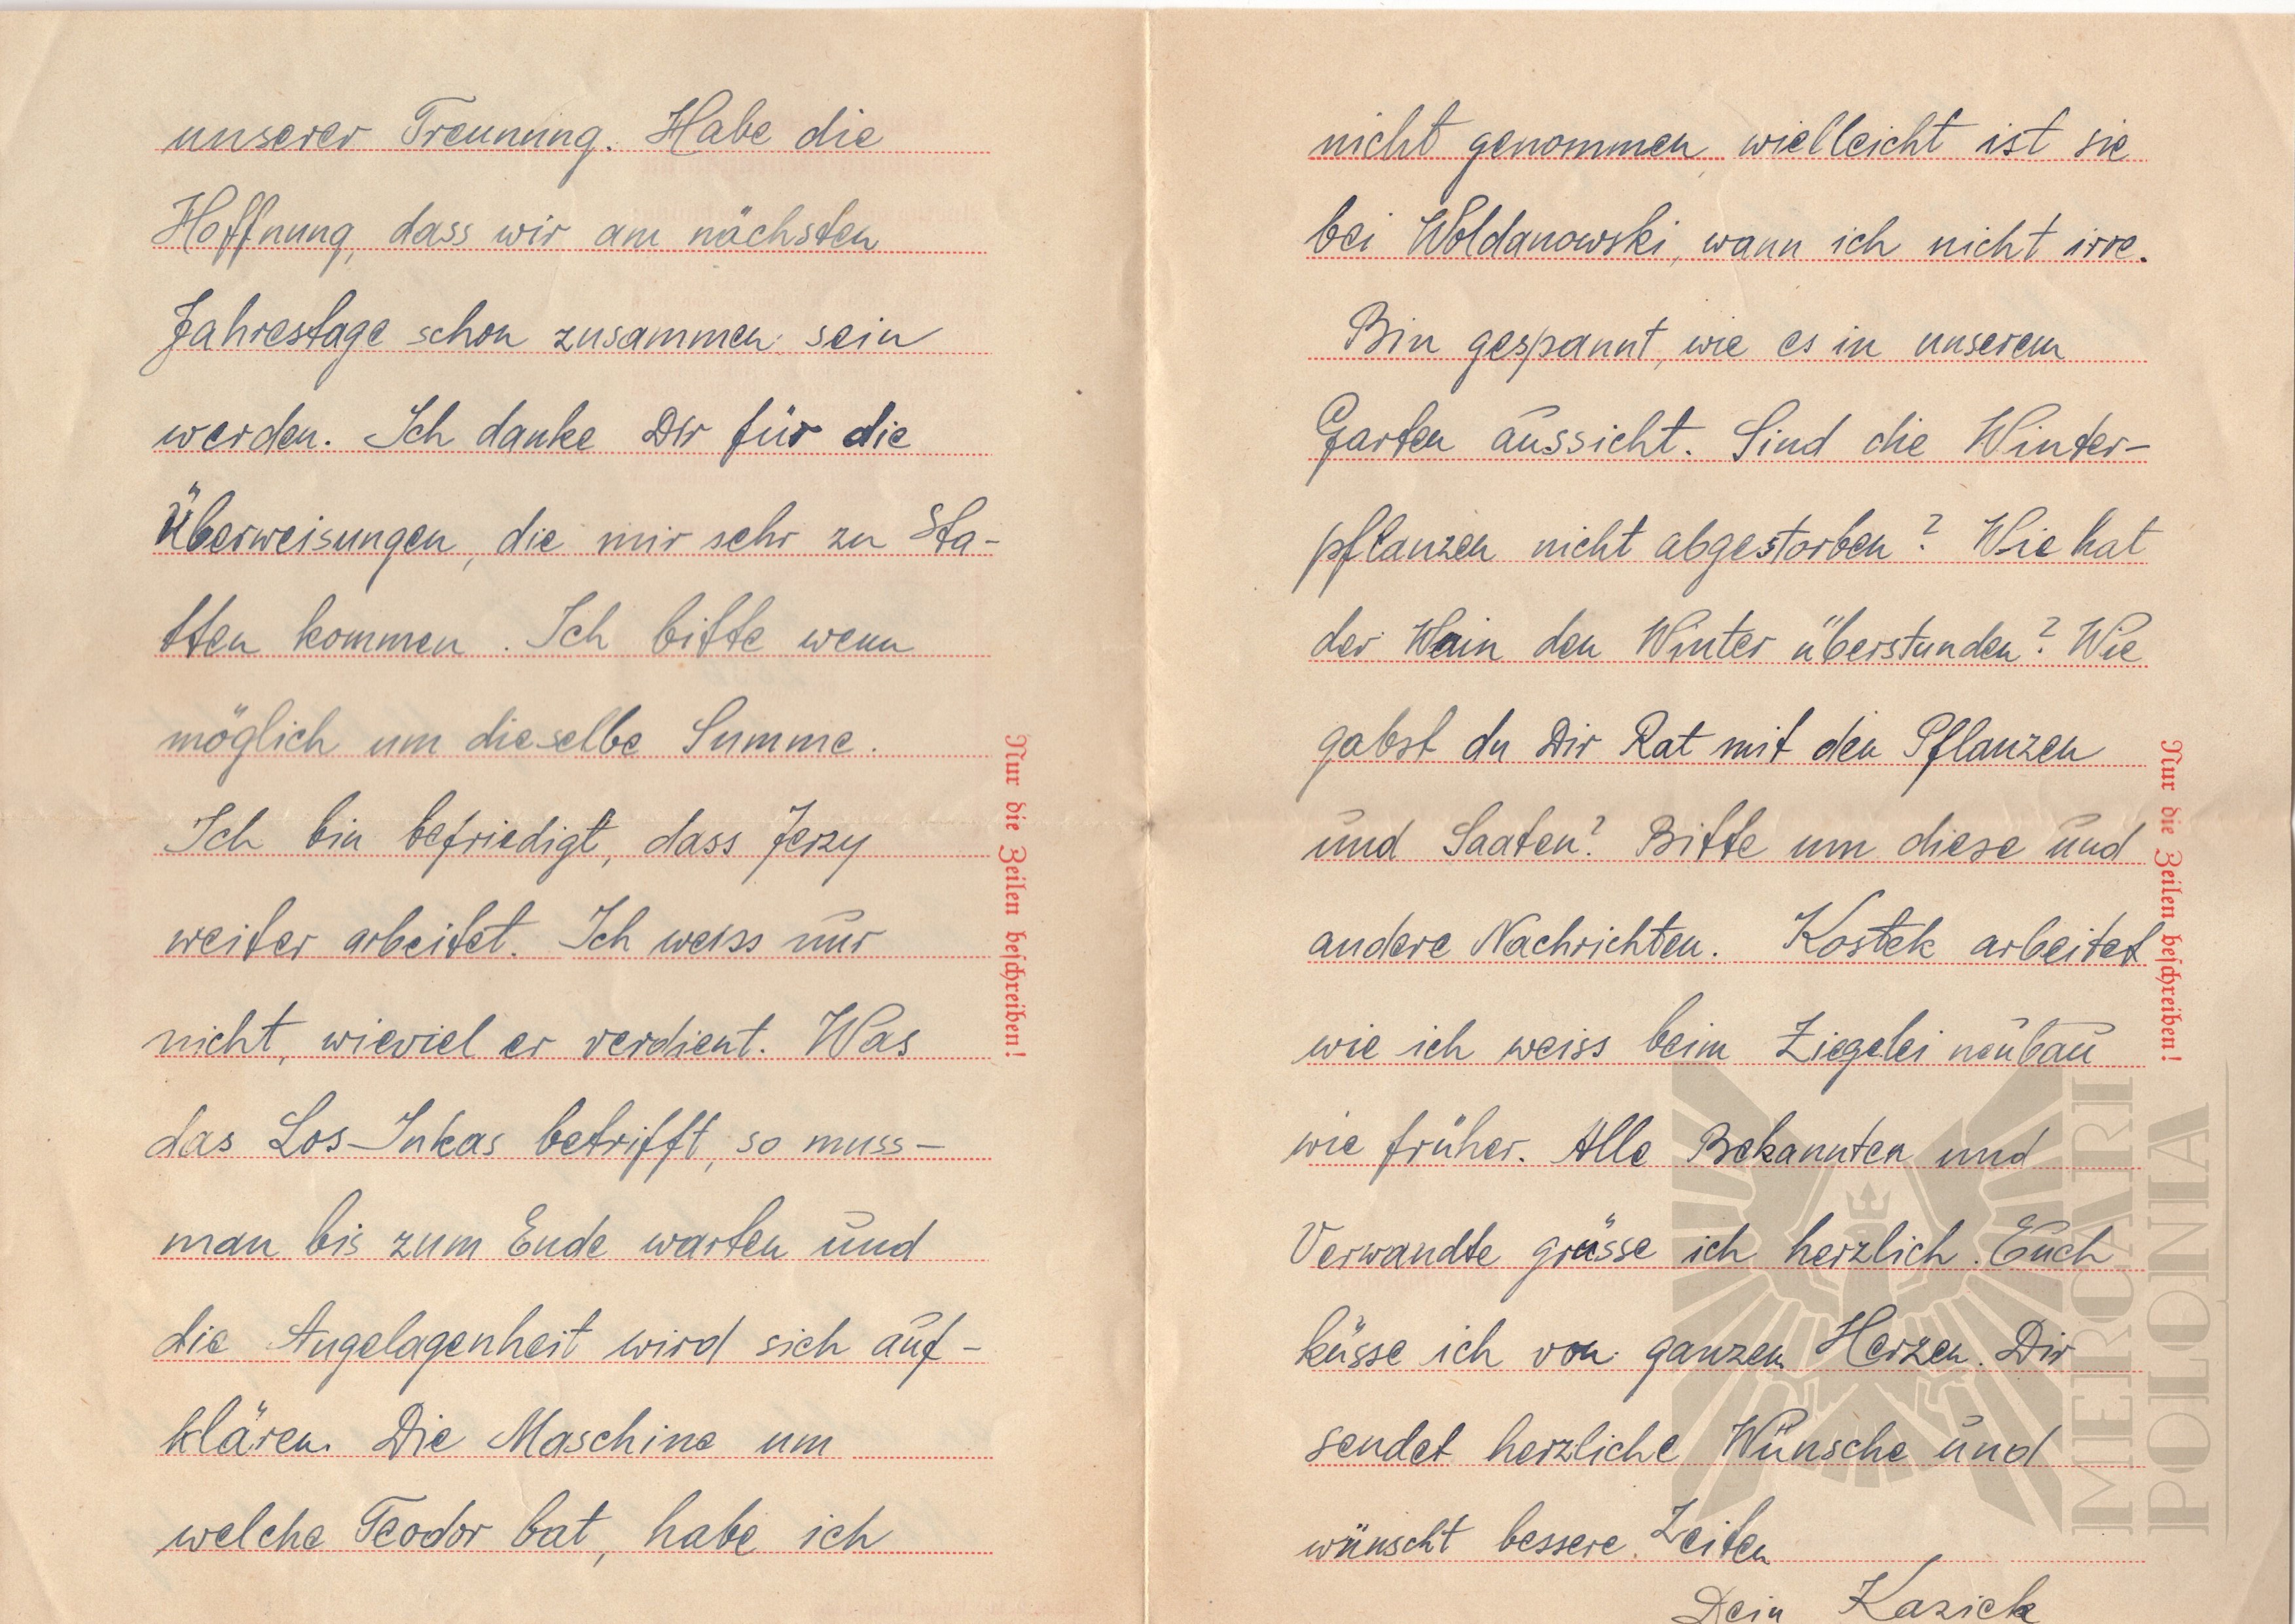 unserer Trennung. Habe die
Hoffnung, dass wir am nächsten
Jahrestage schon zusammen sein
werden. Ich danke Dir für die
Überweisungen, die mir sehr zu Sta-
tten kommen. Ich bitte wenn
möglich um dieselbe Summe.
Ich bin befriedigt, dass Jerzy
weiter arbeitet. Ich weiss nur
nicht, wieviel er verdient. Was
das Los-Inkas betrifft, so muss-
man bis zum Ende warten und
die Angelagenheit wird sich auf-
klären. Die Maschine um
welche Teodor bat, habe ich
Nur die Zeilen beschreiben!
nicht genommen, wielleicht ist sie
bei Woldanowski, wann ich nicht irre.
Bin gespannt, wie es in unserem
Garten aussicht. Sind die Winter-
pflanzen nicht abgestorben? Wie hat
der Wein den Winter überstunden? Wie
gabst du Dir Rat mit den Pflanzen
und Saaten? Bitte um diese und
andere Nachrichten. Kostek arbeitet
wie ich weiss beim Ziegelei neubau
wie früher. Alle Bekannten und
Verwandte grüsse ich herzlich. Euch
küsse ich von ganzem Herzen. Dir
sendet herzliche Wünsche und
wünscht bessere Zeiten
Dein Kazick
Nur die Zeilen beschreiben!
MERCARI
POLONIA